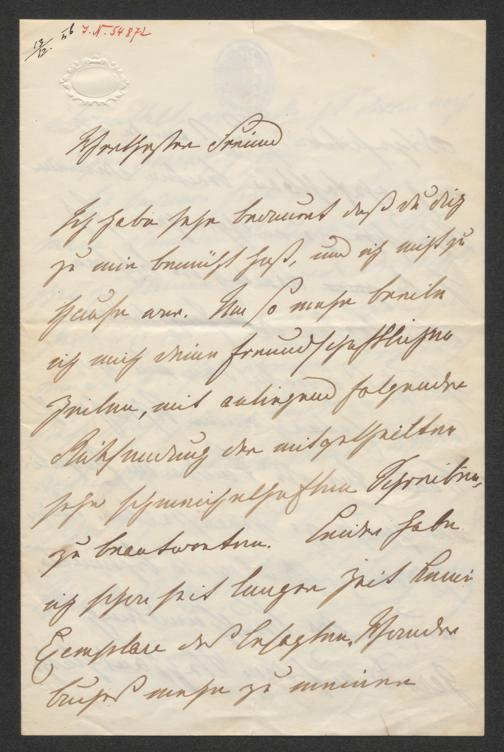 12/12. 26 J.N. 54872
Werthester Freund
Ich habe sehr bedauert daß du dich
zu mir bemüht hast, und ich nicht zu
Hause war. Um so mehr beeile
ich mich deine freundschaftlichen
Zeilen, mit anliegend folgender
Rücksendung der mitgetheilten
sehr schmeichelhaften Schreiben,
zu beantworten. Leider habe
ich schon seit langer Zeit kein
Exemplare des besagten
buches mehr zu meiner